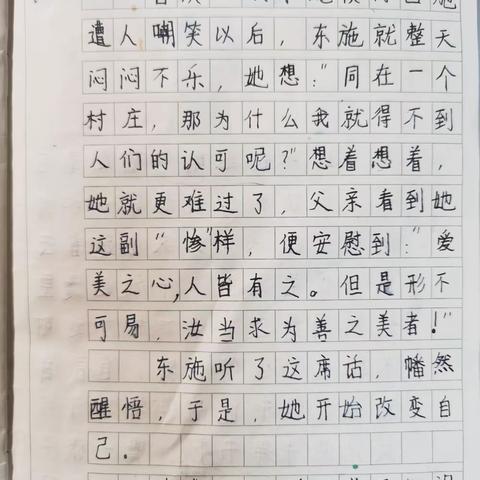 遭人嘲笑以后，东施就整天
闷闷不乐，她想：“同在一个
村庄，那为什么我就得不到
人们的认可呢？”想着想着，
她就更难过了，父亲看到她
这副“惨”样，便安慰到：“爱
美之心，人皆有之。但是形不
可易，汝当求为善之美者！”
东施听了这席话，幡然
醒悟，于是，她开始改变自
己．